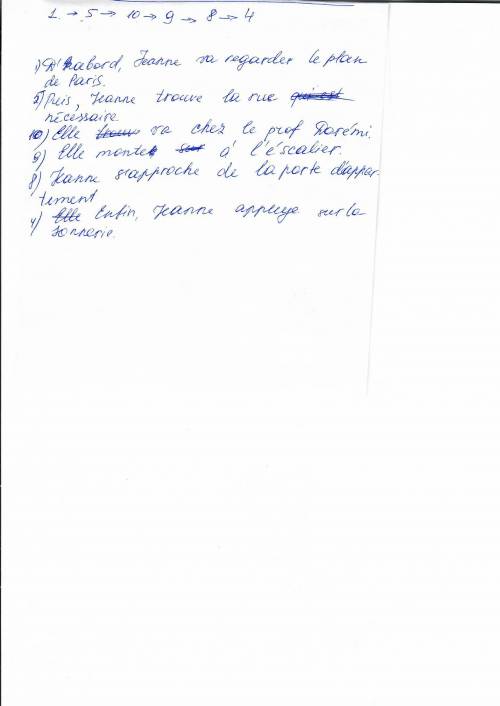 1 → 5 → 10 → 9 → 8 → 4
1) D'abord, Jeanne va regarder le plan
de Paris.
5) Puis, Jeanne trouve la rue qui est
nécessaire.
10) Elle va chez le prof Dorémi.
9) Elle monte à l'éscalier.
8) Jeanne s'approche de la porte d'appar-
tement
4) Elle Enfin, Jeanne appuye sur la
sonnerie.